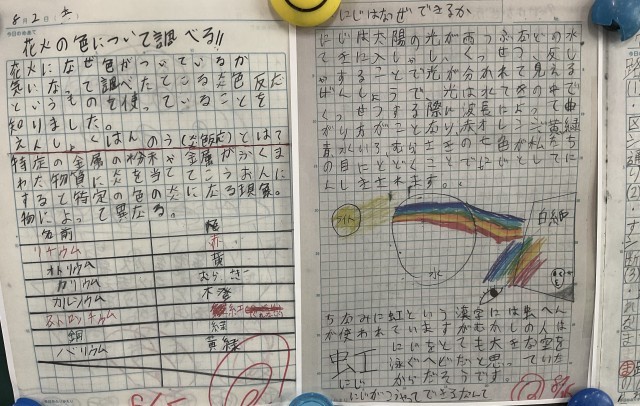 8月2日 土
花火の色について調べる!!
花火になぜ色がついているか
気になって調べたところ炎色反応
というものを使っていることを
知りました。
えんしょくはんのう(炎色反応)とはて
特定の金属の粉末や金属がふくま
れた物質に炎を当ててこうおんに
すると特定の色の炎になる現象。
物によって異なる。
名前
リチウム 赤
ナトリウム 黄
カリウム むらさき
カルシウム 木登
ストロンチウム 紅
銅 緑
バリウム 黄緑
にじはなぜできるか
にじは太陽の光が雨つぶなどの水
てきに入しゃし、くっせつ、反し
ゃすることで光が分かれて見える
げんしょうで、光は水てきの中で
くっせつする際に波長によって曲
がり方がことなり、赤オレンジ黄緑
青水いろむらさきの七色が私たち
の目にとどくことでにじとしてに
んしきされます。
ライト
白紙
水
ちなみに虹という漢字には虫へん
が使われていますがむかしの人は
にじをとても大きな空を
泳ぐへびだと思っていた
からだそうです。
虹
にじ
にじがうつってできるなして